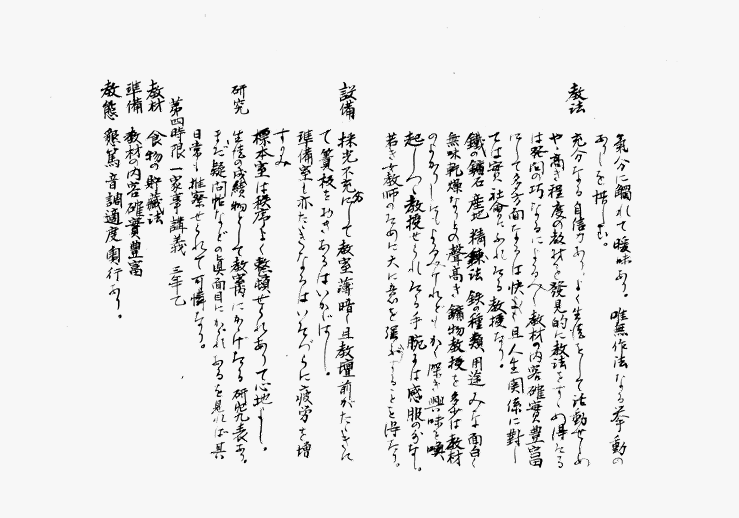 氣分に觸れて曖昧あり。唯無作法なる擧動の
ありしを惜しむ。
教法 充分なる自信力あり、よく生徒として活動せしめ
やゝ高き程度の教材を發見的に教法をすゝめ得たる
は発問巧なるによるべし 教材の内容確實豊富
にして多方面なるは快よく且人生関係に對し
ては實社會にふれたる教授なり。
鐵の鑛石 産地 精錬法 鉄の種類、用途みな面白く
無味乾燥なりとの聲高き鑛物教授を多少は教材
のよろしきにもよるべけれどもかく深き興味を喚
起しつゝ教授せられたる手腕には感服の外なし。
若き女教師のために大に意を強ふすることを得たり。
設備 採光不充分にして教室薄暗し且教壇前がたゝきに
て簀板をおきあるはいかにはし。
準備室も亦たゝきなるはいたづらに疲労を増
すのみ
標本室は秩序よく整頓せられありて心地よし。
研究 生徒の成績物として教室内にかけたる研究表あり。
また疑問帖などの真面目にかゝれあるを見れば其
日常も推察せられて可憐なり。
第四時限 一家事講義 三年乙
教材 食物の貯蔵法
準備 教材の内容確實豊富
教態 懇篤 音調適度 実行あり。